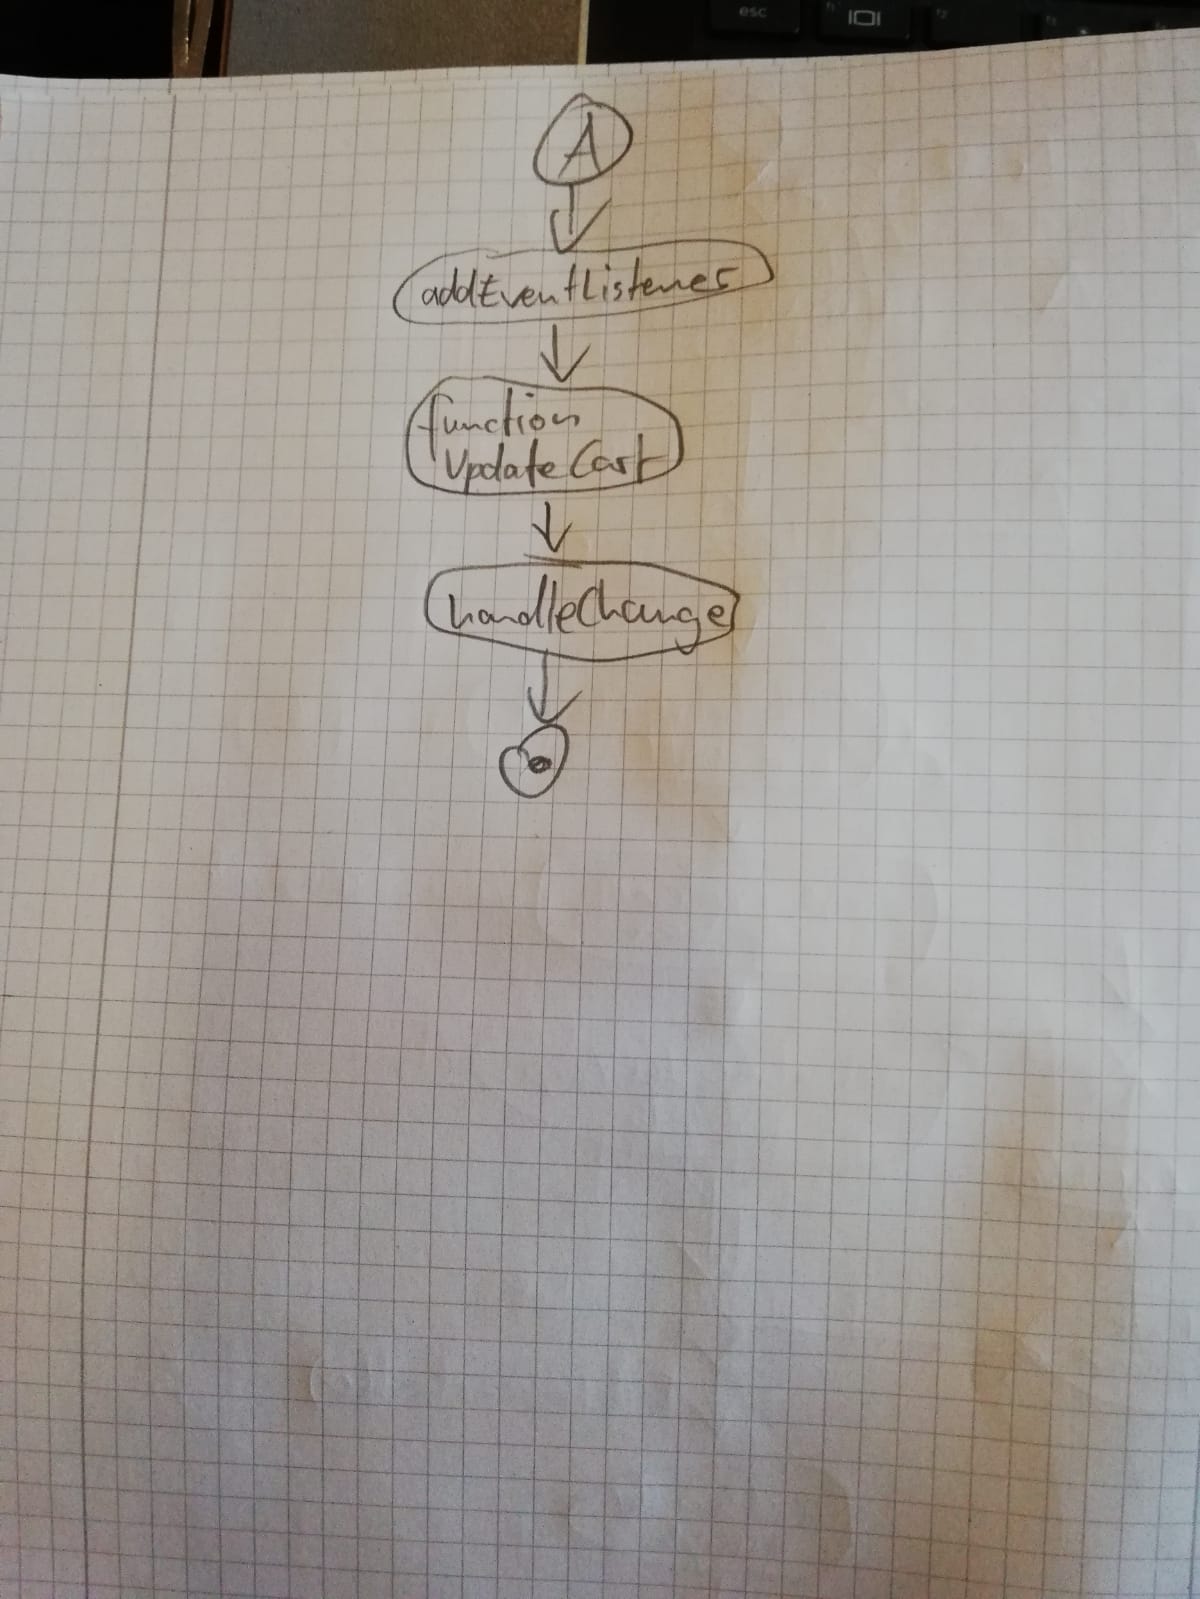 esc
A
addEventListener
function
UpdateCart
handleChange